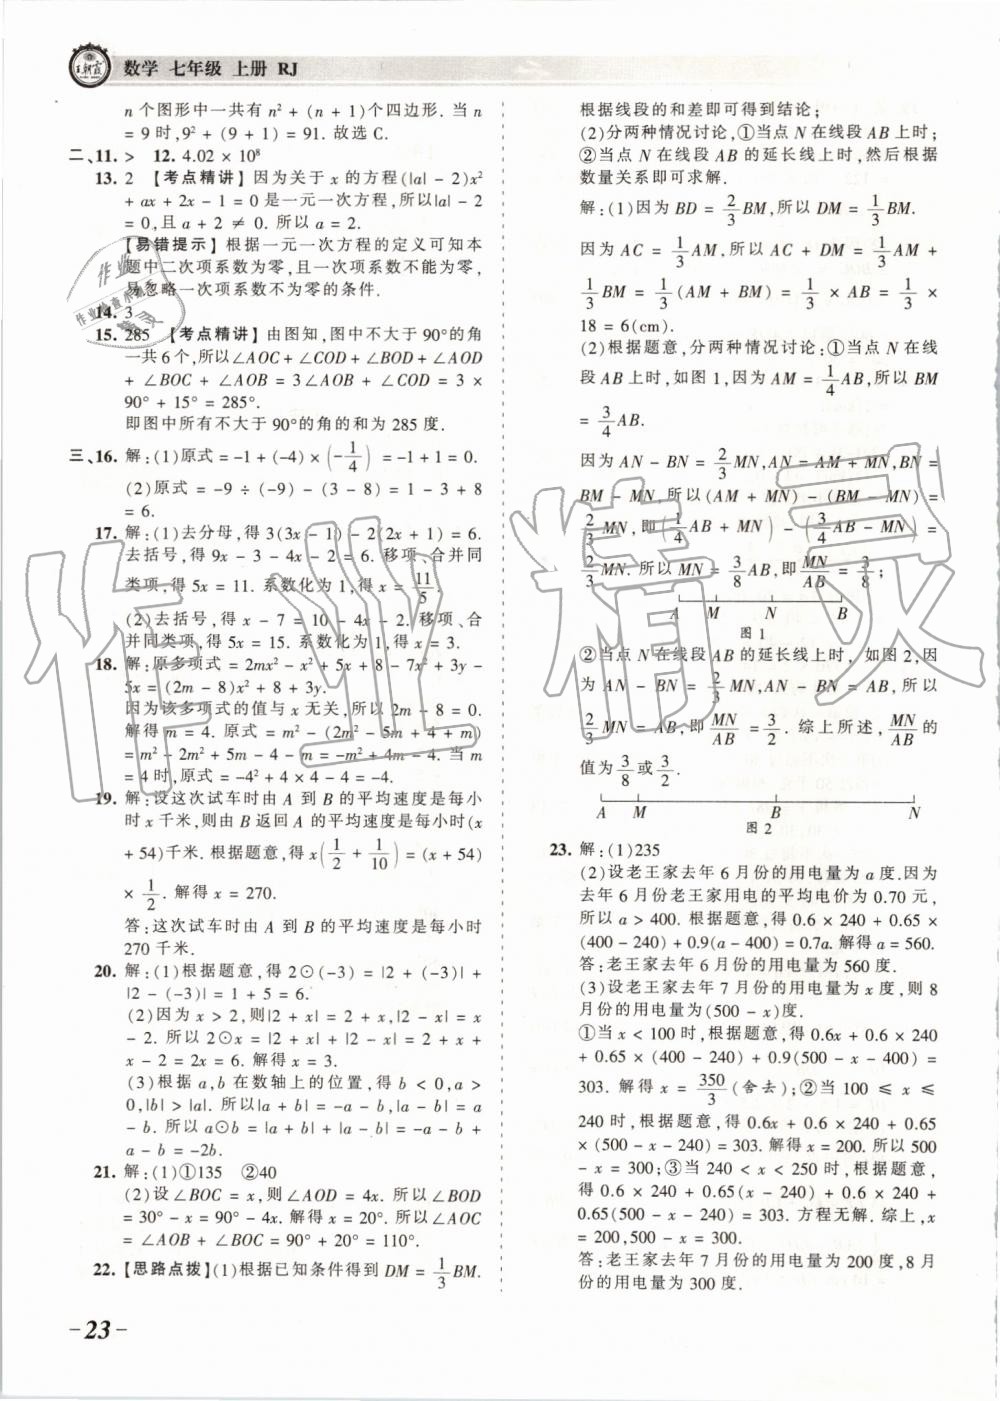 王朝霞
数学 七年级 上册 RJ
n 个图形中一共有 n² + (n + 1)个四边形. 当 n
= 9 时, 9² + (9 + 1) = 91. 故选 C.
二、11. > 12. 4.02 × 10⁸
13. 2 【考点精讲】因为关于 x 的方程(|a| - 2)x²
+ ax + 2x - 1 = 0 是一元一次方程,所以|a| - 2
= 0,且 a + 2 ≠ 0. 所以 a = 2.
【易错提示】根据一元一次方程的定义可知本
题中二次项系数为零,且一次项系数不能为零,
易忽略一次项系数不为零的条件.
14. 3
15. 285 【考点精讲】由图知,图中不大于 90°的角
一共 6 个,所以∠AOC + ∠COD + ∠BOD + ∠AOD
+ ∠BOC + ∠AOB = 3∠AOB + ∠COD = 3 ×
90° + 15° = 285°.
即图中所有不大于 90°的角的和为 285 度.
三、16. 解:(1)原式 = -1 + (-4) × (-1/4) = -1 + 1 = 0.
(2)原式 = -9 ÷ (-9) - (3 - 8) = 1 - 3 + 8
= 6.
17. 解:(1)去分母,得 3(3x - 1) - 2(2x + 1) = 6.
去括号,得 9x - 3 - 4x - 2 = 6. 移项、合并同
类项,得 5x = 11. 系数化为 1,得 x = 11/5.
(2)去括号,得 x - 7 = 10 - 4x - 2. 移项、合
并同类项,得 5x = 15. 系数化为 1,得 x = 3.
18. 解:原多项式 = 2mx² - x² + 5x + 8 - 7x² + 3y -
5x = (2m - 8)x² + 8 + 3y.
因为该多项式的值与 x 无关,所以 2m - 8 = 0.
解得 m = 4. 原式 = m² - (2m² - 5m + 4 + m)
= m² - 2m² + 5m - 4 - m = -m² + 4m - 4. 当 m
= 4 时,原式 = -4² + 4 × 4 - 4 = -4.
19. 解:设这次试车时由 A 到 B 的平均速度是每小
时 x 千米,则由 B 返回 A 的平均速度是每小时(x
+ 54)千米. 根据题意,得 x(1/2 + 1/10) = (x + 54)
× 1/2. 解得 x = 270.
答:这次试车时由 A 到 B 的平均速度是每小时
270 千米.
20. 解:(1)根据题意,得 2⊙(-3) = |2 + (-3)| +
|2 - (-3)| = 1 + 5 = 6.
(2)因为 x > 2,所以|2 + x| = 2 + x,|2 - x| = x
- 2. 所以 2⊙x = |2 + x| + |2 - x| = 2 + x +
x - 2 = 2x = 6. 解得 x = 3.
(3)根据 a,b 在数轴上的位置,得 b < 0,a >
0,|b| > |a|. 所以|a + b| = -a - b,|a - b| = a
- b. 所以 a⊙b = |a + b| + |a - b| = -a - b +
a - b = -2b.
21. 解:(1)①135 ②40
(2)设∠BOC = x,则∠AOD = 4x. 所以∠BOD
= 30° - x = 90° - 4x. 解得 x = 20°. 所以∠AOC
= ∠AOB + ∠BOC = 90° + 20° = 110°.
22. 【思路点拨】(1)根据已知条件得到 DM = 1/3 BM.
- 23 -
根据线段的和差即可得到结论;
(2)分两种情况讨论,①当点 N 在线段 AB 上时;
②当点 N 在线段 AB 的延长线上时,然后根据
数量关系即可求解.
解:(1)因为 BD = 2/3 BM,所以 DM = 1/3 BM.
因为 AC = 1/3 AM,所以 AC + DM = 1/3 AM +
1/3 BM = 1/3 (AM + BM) = 1/3 × AB = 1/3 ×
18 = 6(cm).
(2)根据题意,分两种情况讨论:①当点 N 在线
段 AB 上时,如图 1,因为 AM = 1/4 AB,所以 BM
= 3/4 AB.
因为 AN - BN = 2/3 MN,AN = AM + MN,BN =
BM - MN,所以(AM + MN) - (BM - MN) =
2/3 MN,即(1/4 AB + MN) - (3/4 AB - MN) =
2/3 MN. 所以 MN = 3/8 AB,即 MN/AB = 3/8;
A M N B
图 1
②当点 N 在线段 AB 的延长线上时,如图 2,因
为 AN - BN = 2/3 MN,AN - BN = AB,所以
2/3 MN = AB,即 MN/AB = 3/2. 综上所述,MN/AB 的
值为 3/8 或 3/2.
A M B N
图 2
23. 解:(1)235
(2)设老王家去年 6 月份的用电量为 a 度.因为
去年 6 月份老王家用电的平均电价为 0.70 元,
所以 a > 400. 根据题意,得 0.6 × 240 + 0.65 ×
(400 - 240) + 0.9(a - 400) = 0.7a. 解得 a = 560.
答:老王家去年 6 月份的用电量为 560 度.
(3)设老王家去年 7 月份的用电量为 x 度,则 8
月份的用电量为(500 - x)度.
①当 x < 100 时,根据题意,得 0.6x + 0.6 × 240
+ 0.65 × (400 - 240) + 0.9(500 - x - 400) =
303. 解得 x = 350/3 (舍去);②当 100 ≤ x ≤
240 时,根据题意,得 0.6x + 0.6 × 240 + 0.65
× (500 - x - 240) = 303. 解得 x = 200. 所以 500
- x = 300;③当 240 < x < 250 时,根据题意,
得 0.6 × 240 + 0.65(x - 240) + 0.6 × 240 +
0.65(500 - x - 240) = 303. 方程无解. 综上,x
= 200,500 - x = 300.
答:老王家去年 7 月份的用电量为 200 度,8 月
份的用电量为 300 度.
作业精灵